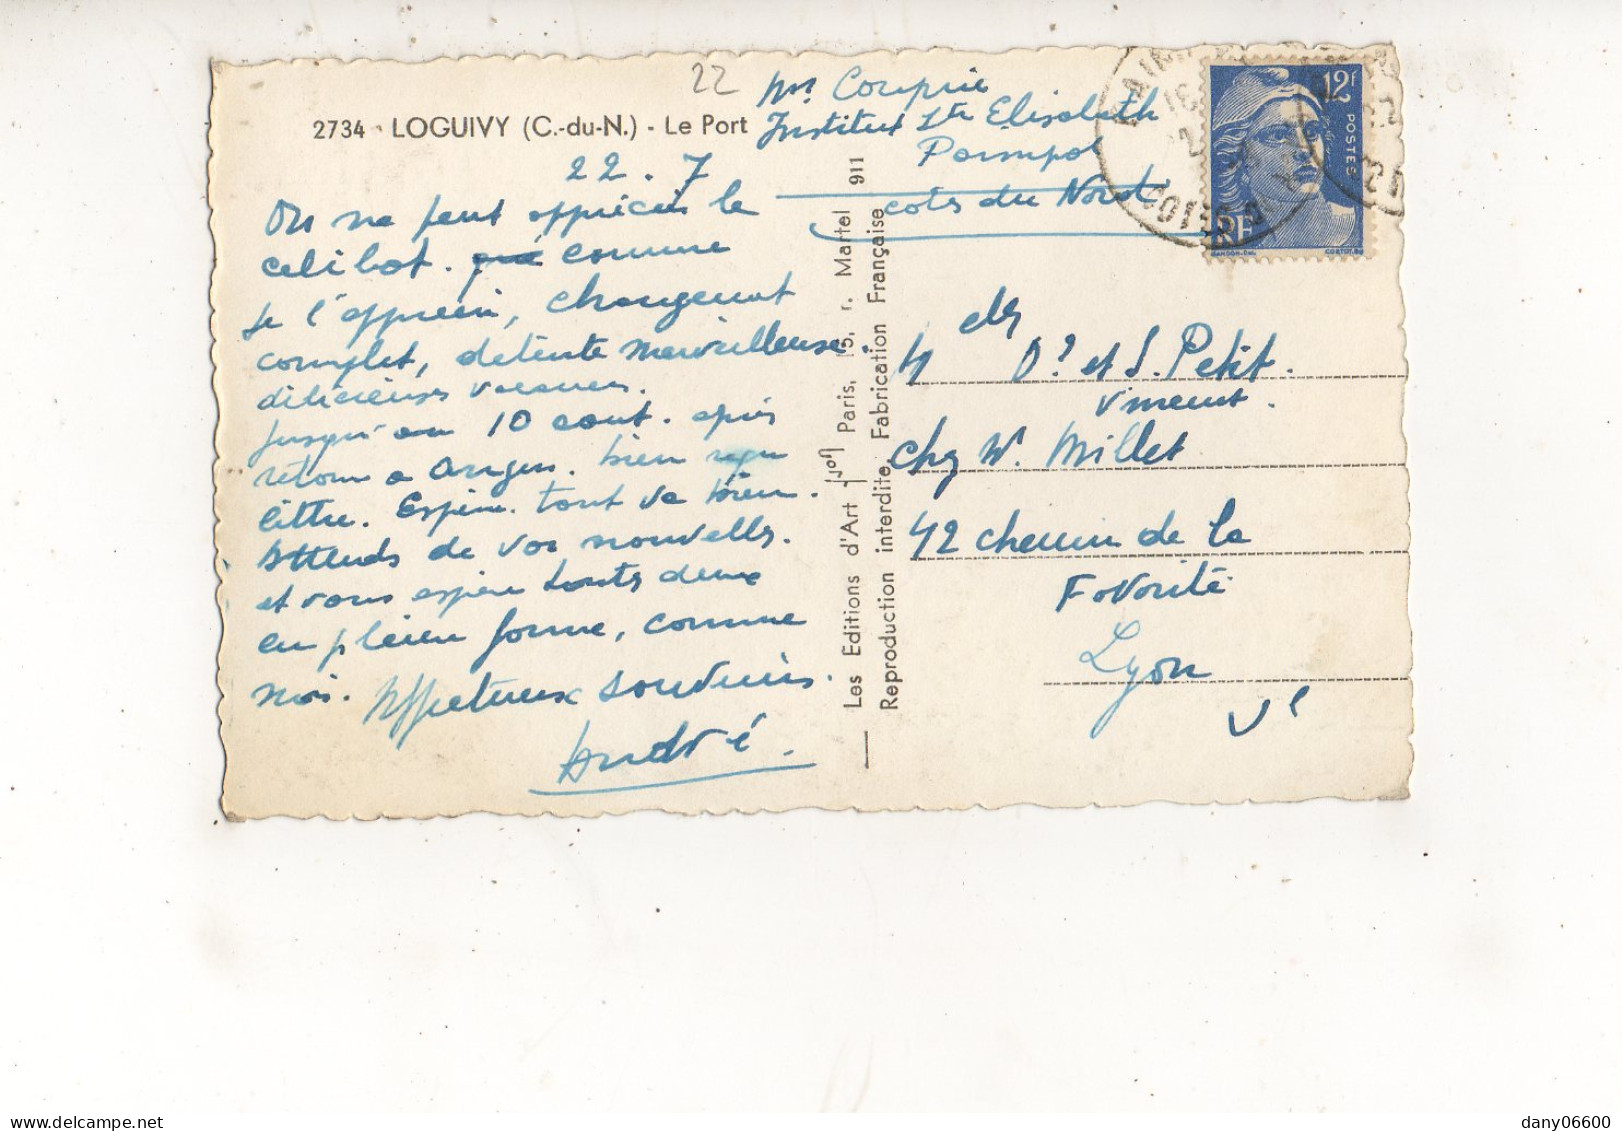 22
2734 - LOGUIVY (C.-du-N.) - Le Port
Mr. Couprie
Institut Ste Elisabeth
Paimpol
cotes du Nord
22.7
On ne peut apprécier le
celibat. comme
je l'apprecie, changement
complet, detente merveilleuse.
délicieuses vacances.
jusqu'au 10 aout. après
retour a Angers. bien reçu
lettre. Espère tout va bien.
Attends de vos nouvelles.
et vous espère toutes deux
en pleine forme, comme
moi. Affectueux souvenirs.
André.
Les Editions d'Art Paris, 15, r. Martel 911
Reproduction interdite Fabrication Française
12F
POSTES
RF
GANDON-DEL.
CORTOT.SC
Melles
D. et S. Petit.
Vincent.
chez M. Millet
42 chemin de la
Favorite
Lyon
Ve
dany06600